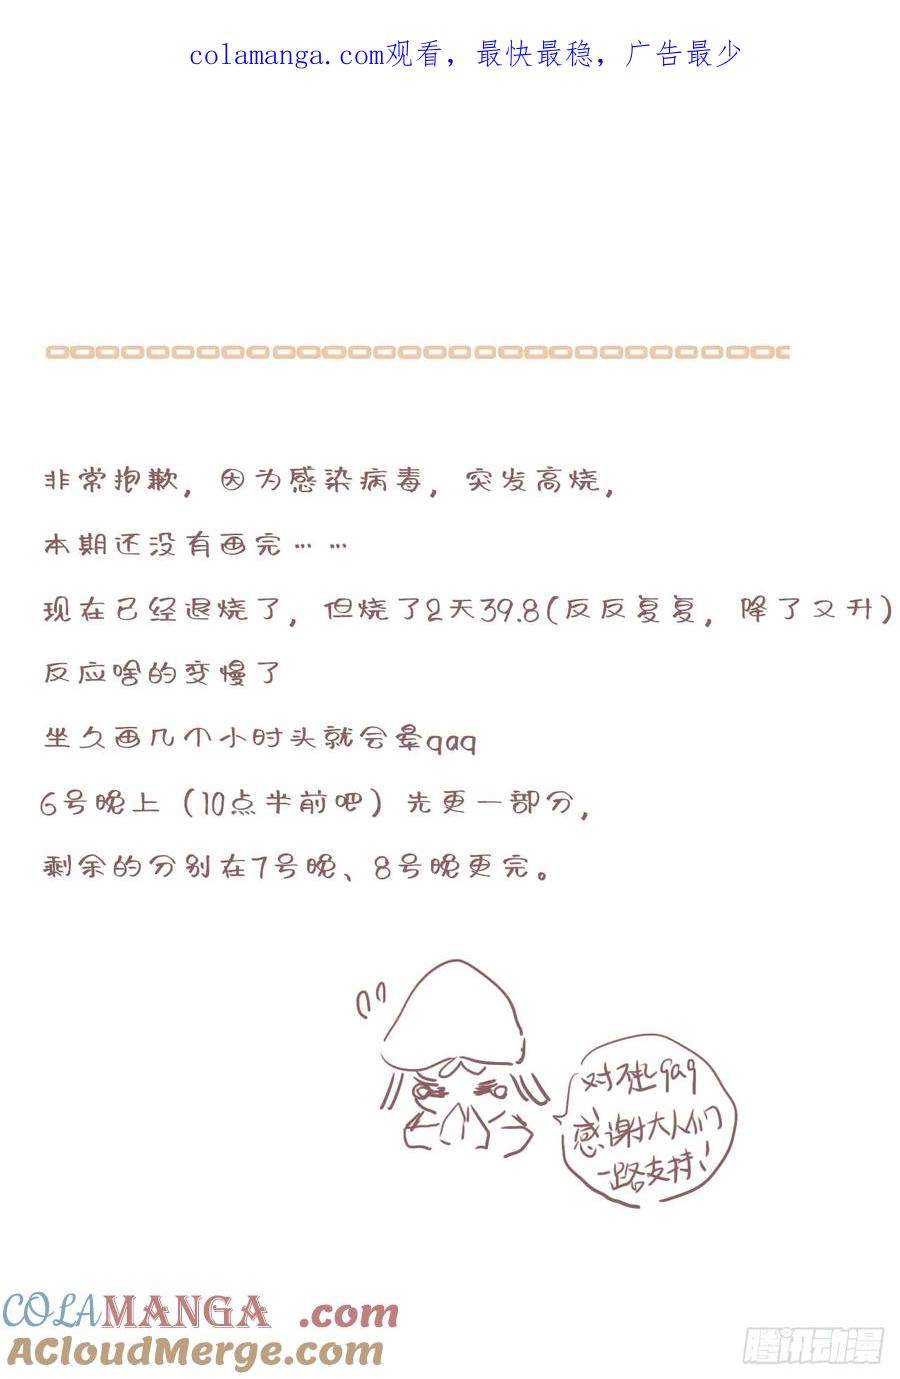 colamanga.com观看，最快最稳，广告最少
非常抱歉，因为感染病毒，突发高烧，
本期还没有画完……
现在已经退烧了，但烧了2天39.8(反反复复，降了又升)
反应啥的变慢了
坐久画几个小时头就会晕qaq
6号晚上（10点半前吧）先更一部分，
剩余的分别在7号晚、8号晚更完。
对不起qaq
感谢大人们
一路支持！
COLAMANGA.com
ACloudMerge.com
腾讯动漫